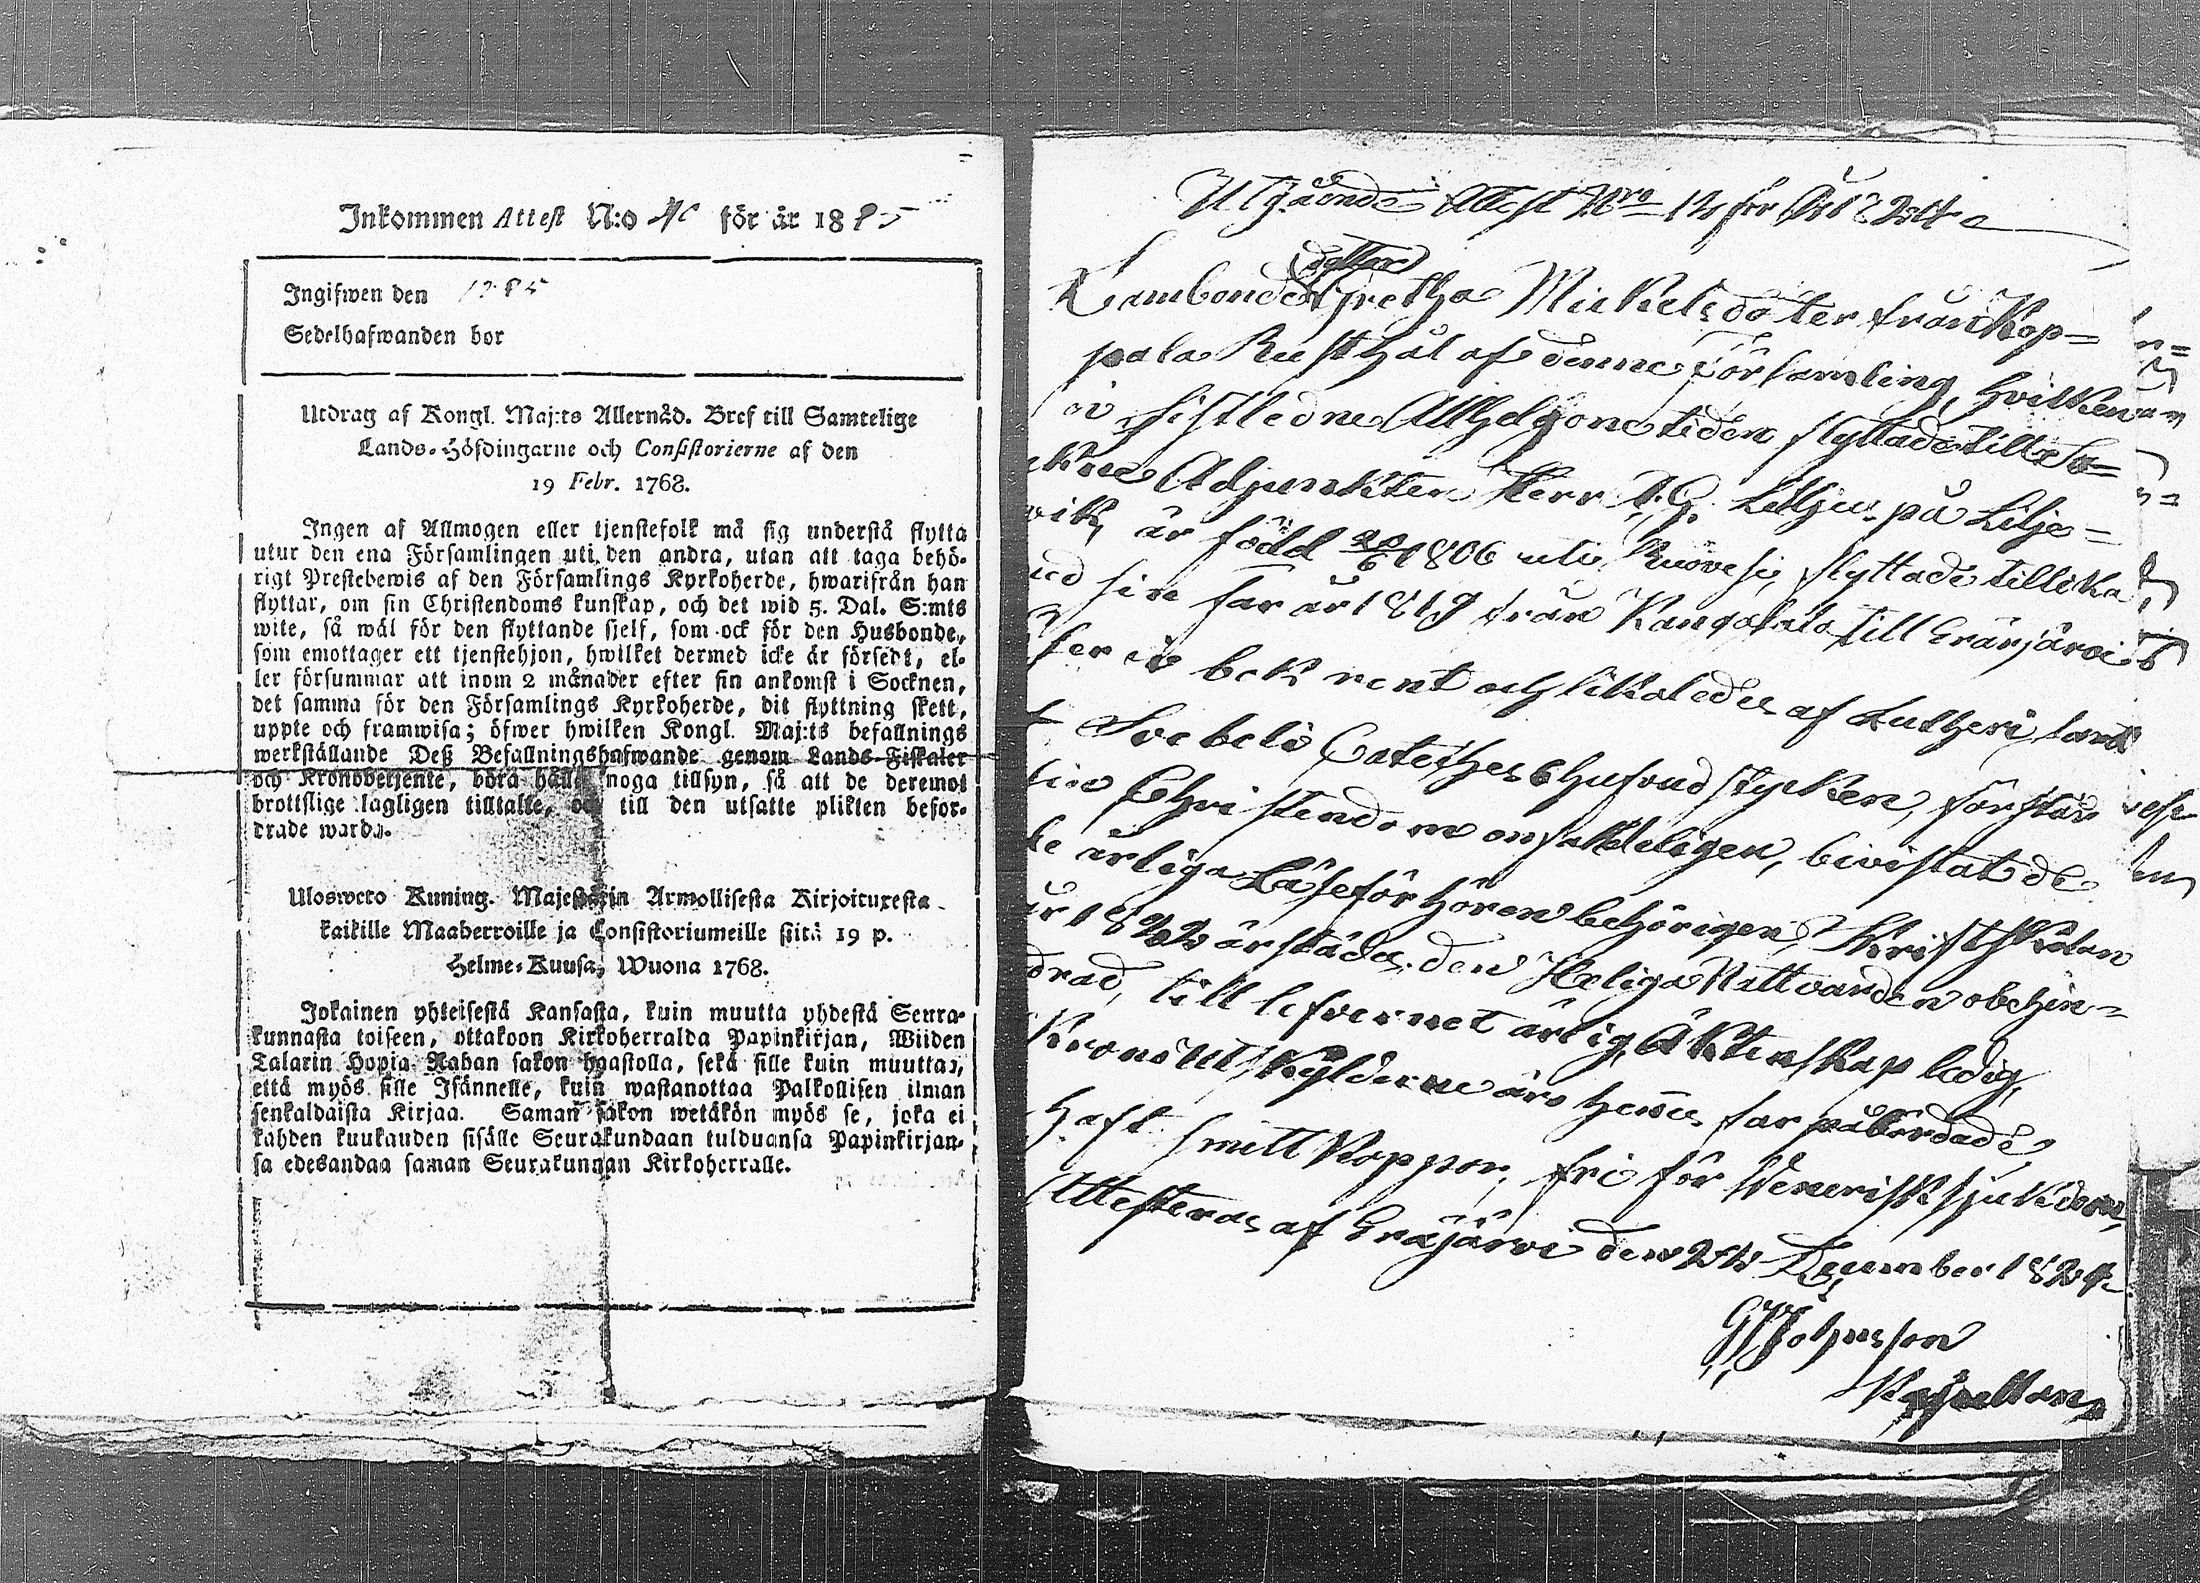 Inkommen Attest N:o för år 18
Ingifwen den
Sedelhafwanden bor
Utdrag af Kongl. Maj:ts Allernåd. Bref till Samtelige
Lands-Höfdingarne och Consistorierne af den
19 Febr. 1768.
Ingen af Allmogen eller tjenstefolk må sig understå flytta
utur den ena Församlingen uti den andra, utan att taga behö-
rigt Prestebewis af den Församlings Kyrkoherde, hwarifrån han
flyttar, om sin Christendoms kunskap, och det wid 5. Dal. S:mts
wite, så wäl för den flyttande sjelf, som ock för den Husbonde,
som emottager ett tjenstehjon, hwilket dermed icke är försedt, el-
ler försummar att inom 2 månader efter sin ankomst i Socknen,
det samma för den Församlings Kyrkoherde, dit flyttning skett,
uppte och framwisa; öfwer hwilken Kongl. Maj:ts befallnings
werkställande Deß Befallningshafwande genom Lands-Fiskaler
och Kronobetjente, böra hålla noga tillsyn, så att de deremot
brottslige lagligen tilltalte, och till den utsatte plikten befor-
drade warda.
Ulosweto Kuning. Majestätin Armollisesta Kirjoituxesta
kaikille Maaherroille ja Consistoriumeille siitä 19 p.
Helme-Kuusa, Wuona 1768.
Jokainen yhteisestä Kansasta, kuin muutta yhdestä Seura-
kunnasta toiseen, ottakoon Kirkoherralda Papinkirjan, Wiiden
Talarin Hopia-Rahan sakon haastolla, sekä sille kuin muuttaa,
että myös sille Isännelle, kuin wastanottaa Palkollisen ilman
senkaldaista Kirjaa. Saman sakon wetäkön myös se, joka ei
kahden kuukauden sisälle Seurakundaan tulduansa Papinkirjan-
sa edesandaa saman Seurakunnan Kirkoherralle.
Utgående Attest Nro 12 för År 1824
dotter
Lambonde Gretha Mickelsdotter från Kop-
pala Rusthål af denne Församling, hvilken
i sistledne Allhelgonetiden flyttade till So-
Adjunkten Herr A. G. Lilljus på Lilje-
vik, är född 20/6 1806 uti Ruovesi, flyttade till
sin far år 1819 från Kangasala till Eräjärvi
ser i bok rent och likaledes af Lutheri
Svebelii Cateches 6 hufvudstycken, förstår
sin Christendom enfaldeligen, bivistat de
årliga Läseförhören behörigen,
är 1822 härstädes den Heliga Nattvarden obehin-
drad, till lefvernet ärlig, Äktenskap ledig,
Kronoutskylderne äro hennes far påbördade
haft Smittkoppor, fri för Venerisk sjukdom,
Attesteras af Eräjärvi den December 1824.
Johnsson
Kapellan